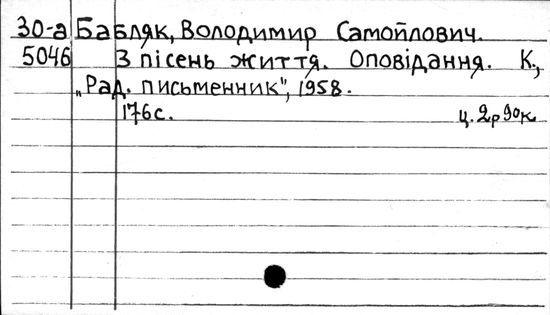 30-а Бабляк, Володимир Самойлович.
5046 З пісень життя. Оповідання. К.,
„Рад. письменник", 1958.
176с. ц. 2р90к